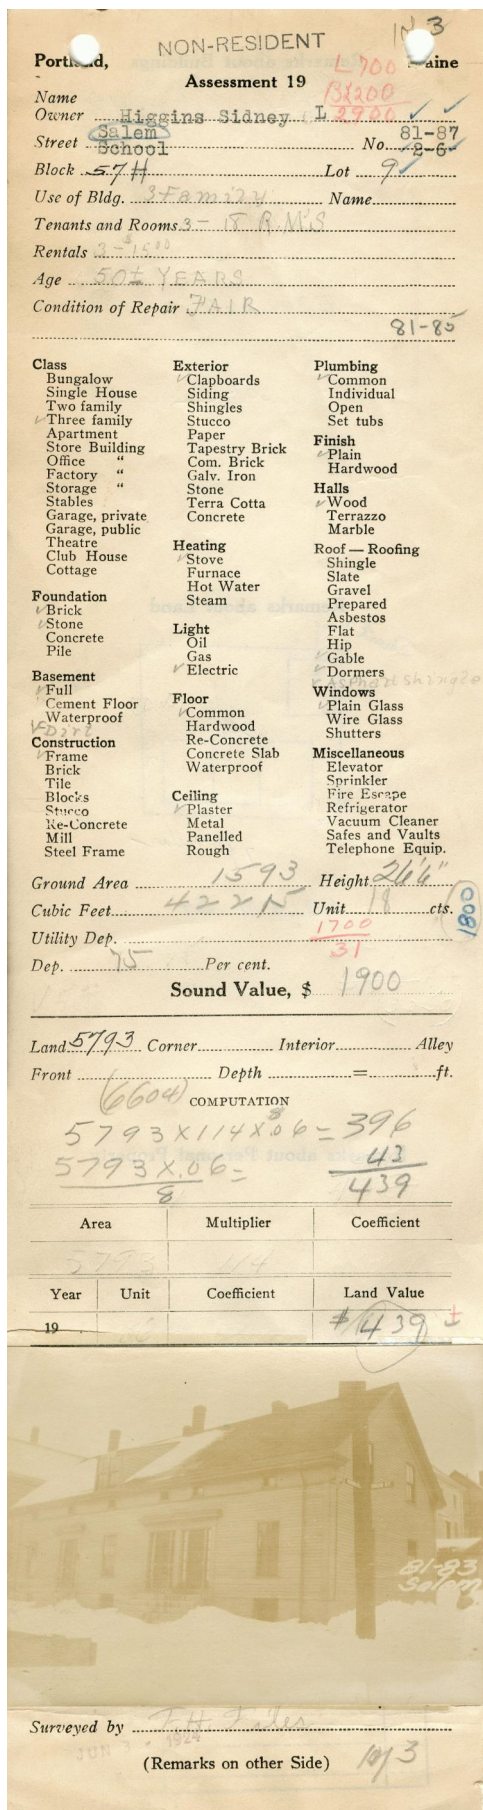 NON-RESIDENT
Portland, Maine
L 700
Assessment 19
B 2200
2900
Name
Owner Higgins Sidney L
Street Salem No. 81-87
School 2-6
Block 57H Lot 9
Use of Bldg. 3 Family Name
Tenants and Rooms 3 - 18 RMS
Rentals 3 - $15.00
Age 50± YEARS
Condition of Repair FAIR
81-85
Class
Bungalow
Single House
Two family
✓ Three family
Apartment
Store Building
Office "
Factory "
Storage "
Stables
Garage, private
Garage, public
Theatre
Club House
Cottage
Foundation
✓ Brick
✓ Stone
Concrete
Pile
Basement
✓ Full
Cement Floor
Waterproof
✓ Dirt
Construction
✓ Frame
Brick
Tile
Blocks
Stucco
Re-Concrete
Mill
Steel Frame
Exterior
✓ Clapboards
Siding
Shingles
Stucco
Paper
Tapestry Brick
Com. Brick
Galv. Iron
Stone
Terra Cotta
Concrete
Heating
✓ Stove
Furnace
Hot Water
Steam
Light
Oil
Gas
✓ Electric
Floor
✓ Common
Hardwood
Re-Concrete
Concrete Slab
Waterproof
Ceiling
✓ Plaster
Metal
Panelled
Rough
Plumbing
✓ Common
Individual
Open
Set tubs
Finish
✓ Plain
Hardwood
Halls
✓ Wood
Terrazzo
Marble
Roof — Roofing
Shingle
Slate
Gravel
Prepared
Asbestos
Flat
Hip
✓ Gable
✓ Dormers
✓ Asphalt Shingle
Windows
✓ Plain Glass
Wire Glass
Shutters
Miscellaneous
Elevator
Sprinkler
Fire Escape
Refrigerator
Vacuum Cleaner
Safes and Vaults
Telephone Equip.
Ground Area 1593 Height 26'6"
Cubic Feet 42215 Unit 18 cts.
1800
Utility Dep. 1700
31
Dep. 75 Per cent.
Sound Value, $ 1900
Land 5793 Corner Interior Alley
Front Depth = ft.
(6604) COMPUTATION
5793 X 114 X .06 = 396
5793 X .06 = 43
8 439
Area Multiplier Coefficient
5793 114
Year Unit Coefficient Land Value
19 06 $ 439 ±
81-83
Salem
Surveyed by F. H. Files
JUN 3 - 1924
(Remarks on other Side)